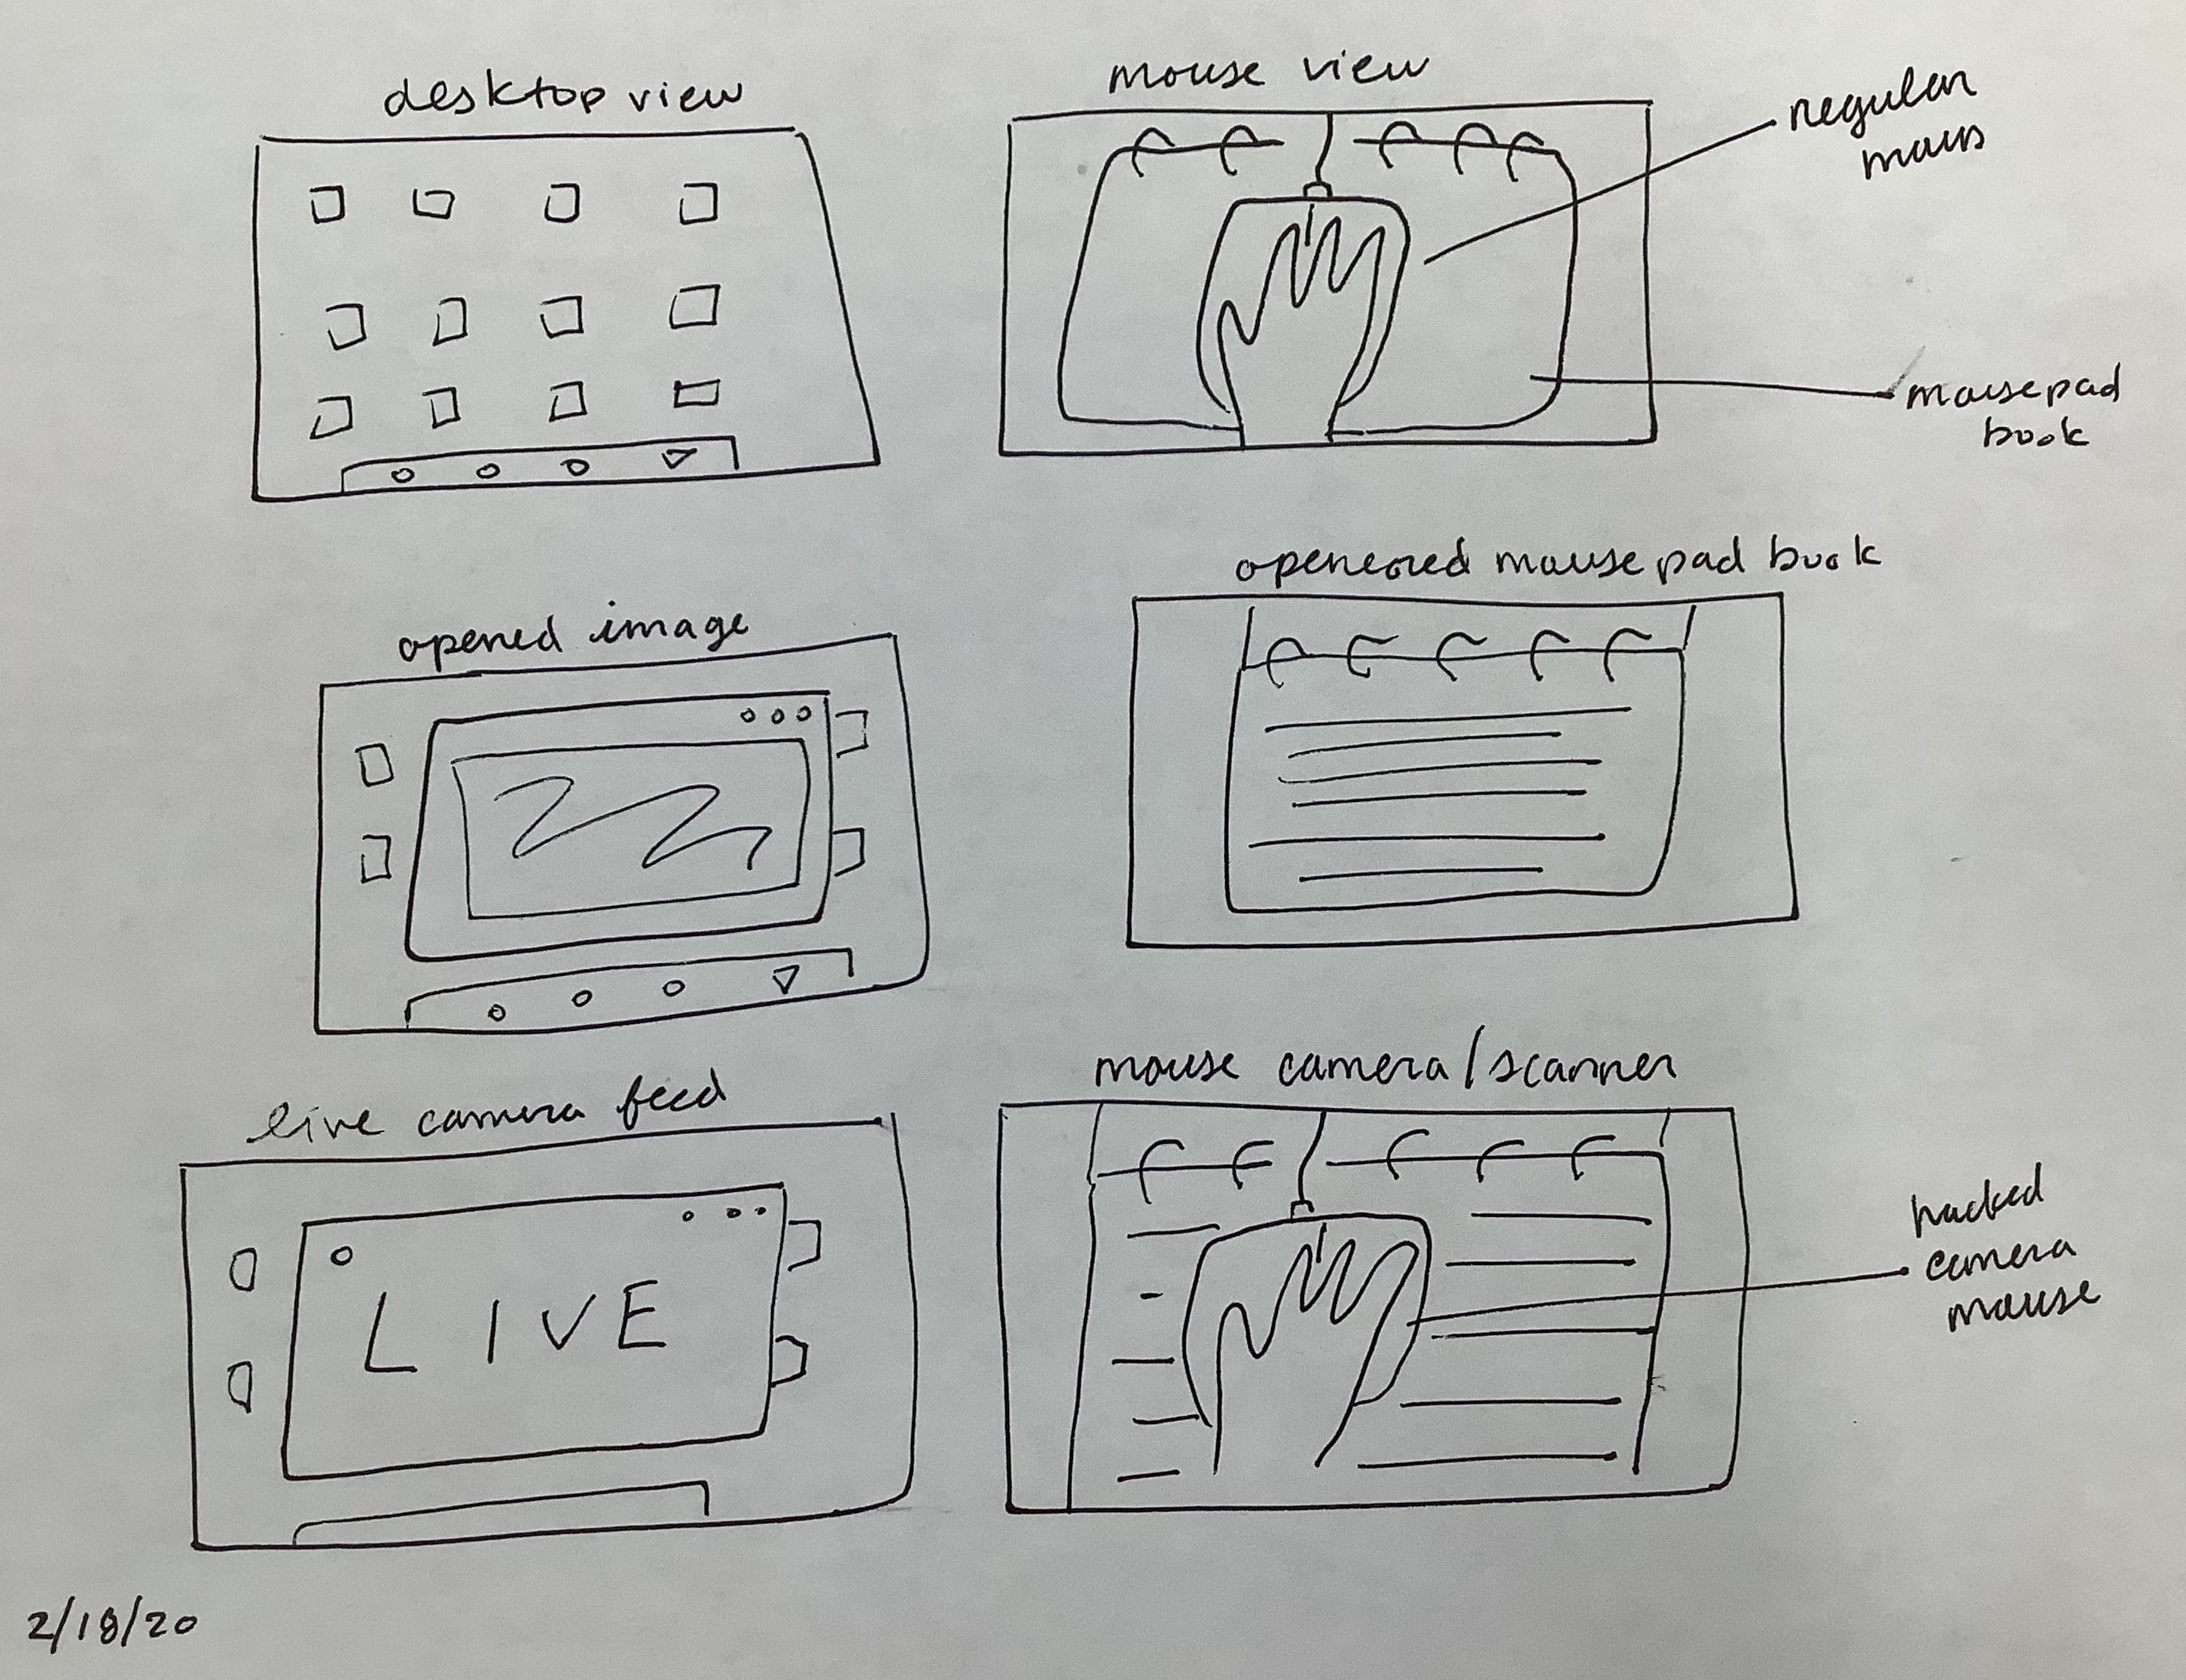 desktop view
mouse view
regular
mous
mousepad
book
opened image
openeored mousepad book
live camera feed
LIVE
mouse camera/scanner
hacked
camera
mouse
2/18/20